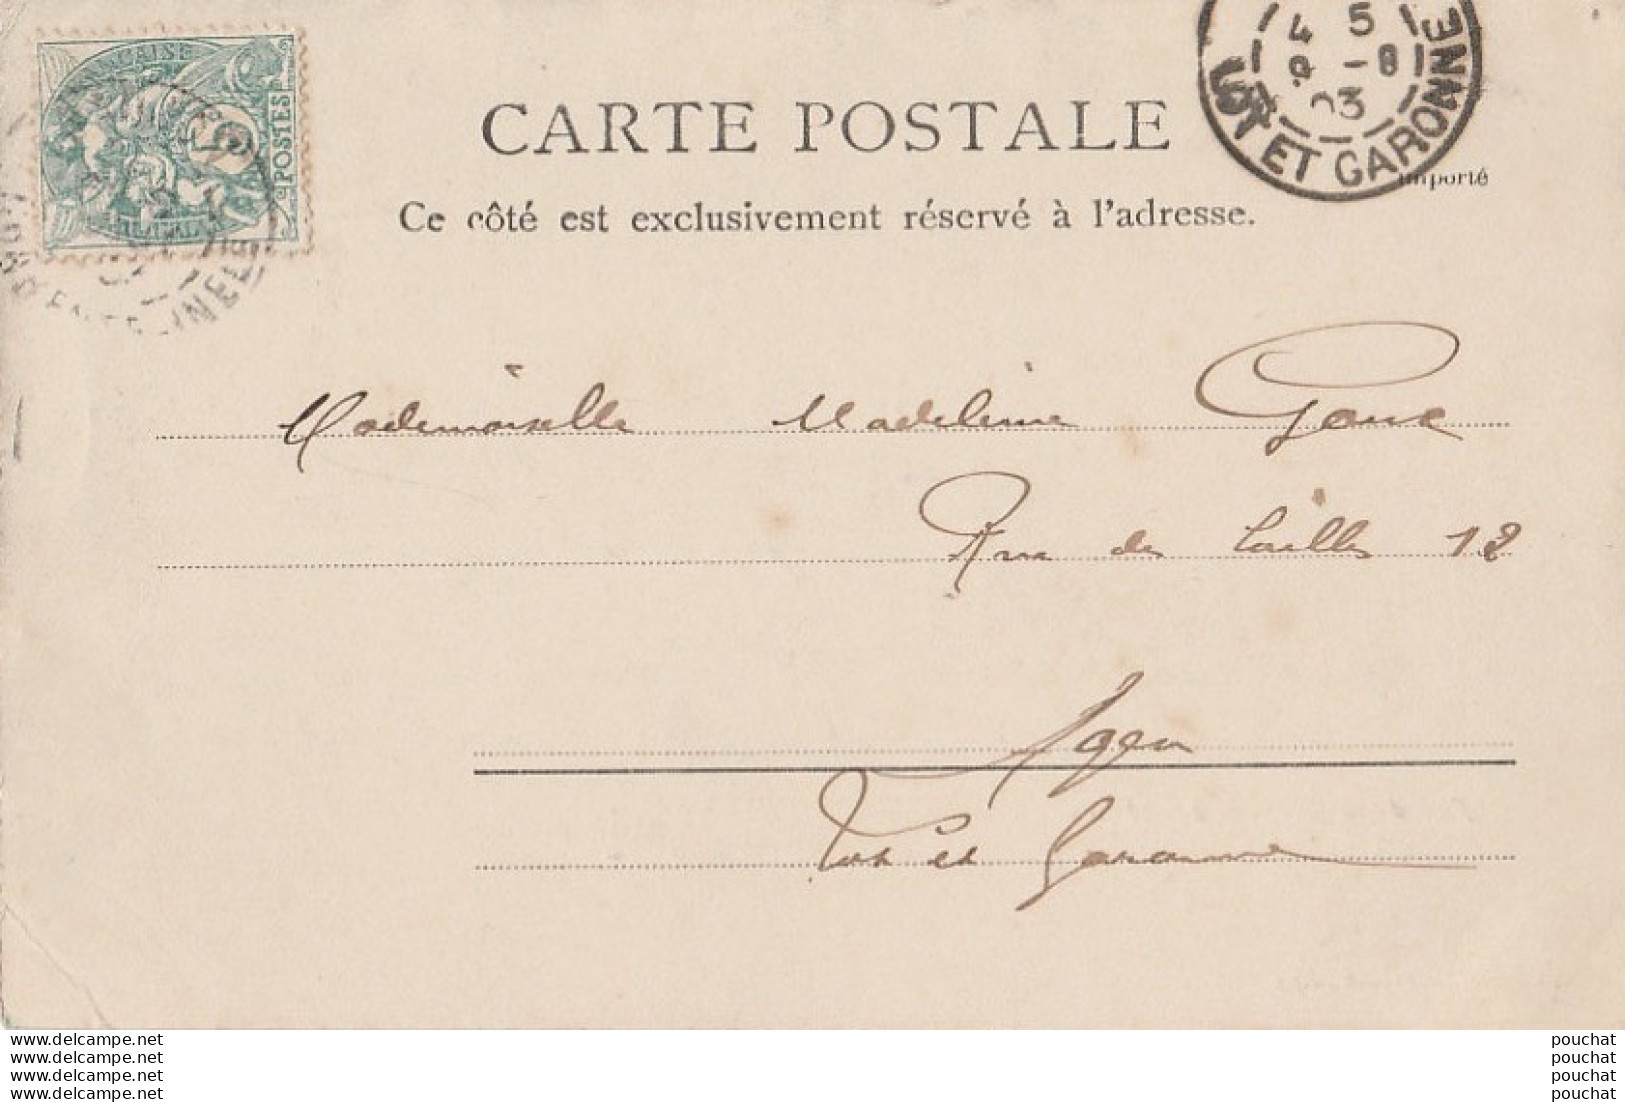 FRANÇAISE
POSTES
5
4 5
9 -8
03
LOT ET GARONNE
CARTE POSTALE
importé
Ce côté est exclusivement réservé à l'adresse.
Mademoiselle Madeleine
Rue des 12
Agen
Lot et Garonne
www.delcampe.net pouchat
www.delcampe.net pouchat
www.delcampe.net pouchat
www.delcampe.net pouchat